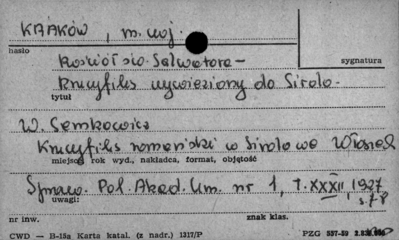 KRAKÓW, m. woj.
hasło
Kościół św. Salwatora -
sygnatura
Krucyfiks wywieziony do Sirolo.
tytuł
W. Semkowicz
Krucyfiks romański w Sirolo we Włoszech
miejsce rok wyd., nakładca, format, objętość
Spraw. Pol. Akad. Um. nr 1, t. XXXII, 1927
uwagi: s. 7 8
nr inw. znak klas.
CWD — B-15a Karta katal. (z nadr.) 1317/P PZG 557-59